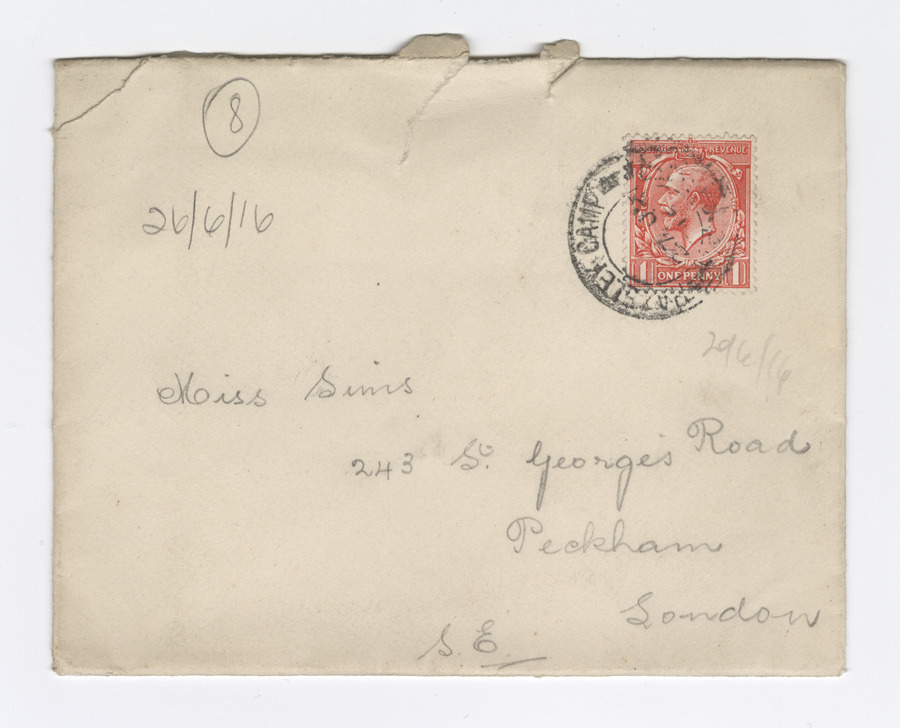 8
26/6/16
REVENUE
1 ONE PENNY 1
CAMP
29/6/16
Miss Sims
243 St. George's Road
Peckham
London
S.E.